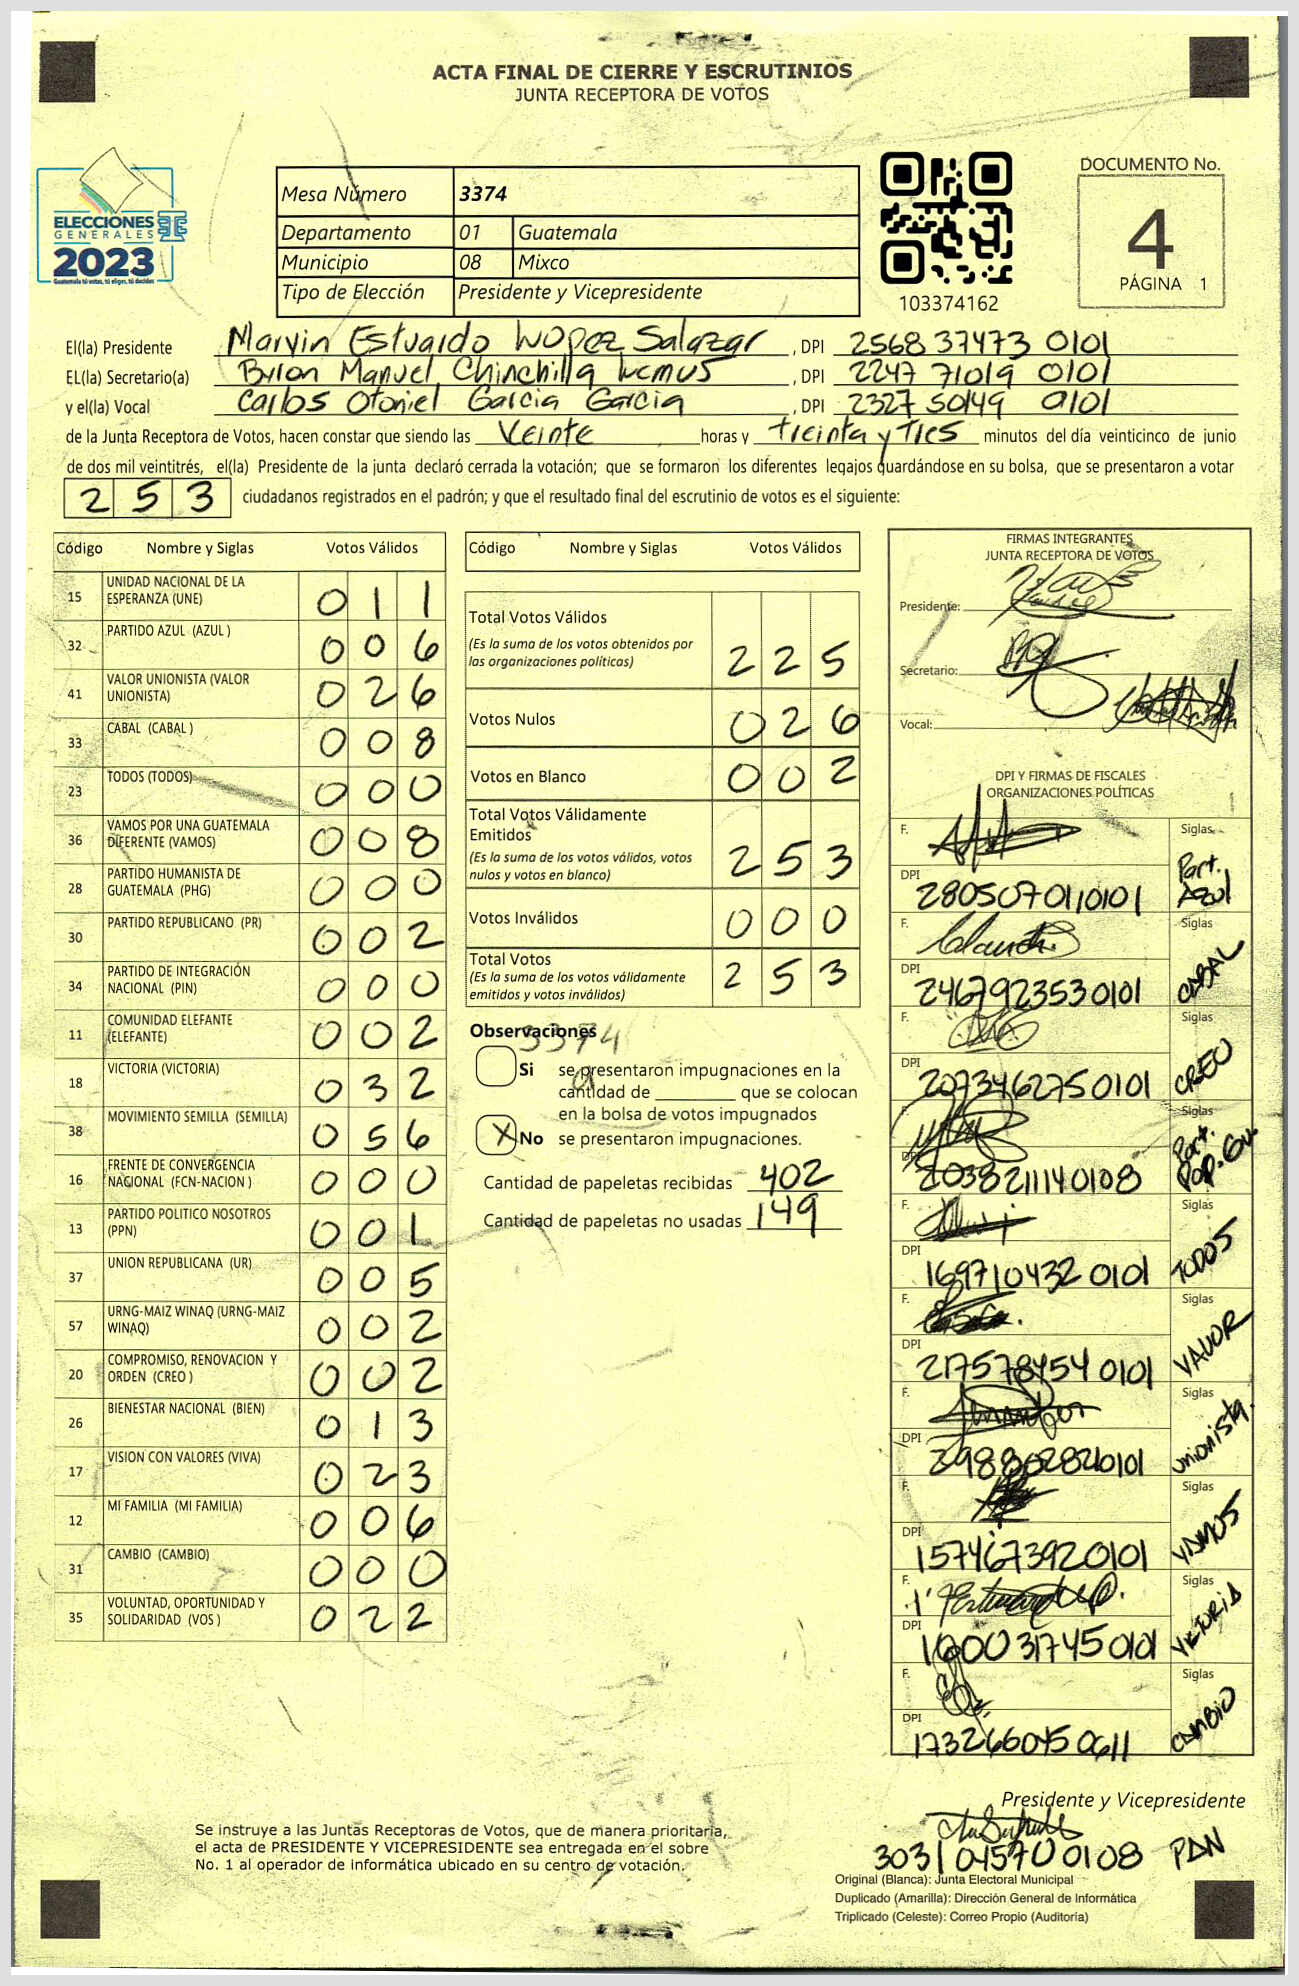 ACTA FINAL DE CIERRE Y ESCRUTINIOS
JUNTA RECEPTORA DE VOTOS
ELECCIONES
GENERALES
2023
Guatemala tú votas, tú eliges, tú decides
Mesa Número 3374
Departamento 01 Guatemala
Municipio 08 Mixco
Tipo de Elección Presidente y Vicepresidente
103374162
DOCUMENTO No.
4
PÁGINA 1
El(la) Presidente Marvin Estuardo López Salazar, DPI 2568 37473 0101
EL(la) Secretario(a) Byron Manuel Chinchilla Lemus, DPI 2247 71019 0101
y el(la) Vocal Carlos Otoniel Garcia Garcia, DPI 2327 50149 0101
de la Junta Receptora de Votos, hacen constar que siendo las Veinte horas y treinta y Tres minutos del día veinticinco de junio
de dos mil veintitrés, el(la) Presidente de la junta declaró cerrada la votación; que se formaron los diferentes legajos guardándose en su bolsa, que se presentaron a votar
253 ciudadanos registrados en el padrón; y que el resultado final del escrutinio de votos es el siguiente:
Código Nombre y Siglas Votos Válidos
15 UNIDAD NACIONAL DE LA ESPERANZA (UNE) 011
32 PARTIDO AZUL (AZUL ) 006
41 VALOR UNIONISTA (VALOR UNIONISTA) 026
33 CABAL (CABAL ) 008
23 TODOS (TODOS) 000
36 VAMOS POR UNA GUATEMALA DIFERENTE (VAMOS) 008
28 PARTIDO HUMANISTA DE GUATEMALA (PHG) 000
30 PARTIDO REPUBLICANO (PR) 002
34 PARTIDO DE INTEGRACIÓN NACIONAL (PIN) 000
11 COMUNIDAD ELEFANTE (ELEFANTE) 002
18 VICTORIA (VICTORIA) 032
38 MOVIMIENTO SEMILLA (SEMILLA) 056
16 FRENTE DE CONVERGENCIA NACIONAL (FCN-NACION ) 000
13 PARTIDO POLITICO NOSOTROS (PPN) 001
37 UNION REPUBLICANA (UR) 005
57 URNG-MAIZ WINAQ (URNG-MAIZ WINAQ) 002
20 COMPROMISO, RENOVACION Y ORDEN (CREO ) 002
26 BIENESTAR NACIONAL (BIEN) 013
17 VISION CON VALORES (VIVA) 023
12 MI FAMILIA (MI FAMILIA) 006
31 CAMBIO (CAMBIO) 000
35 VOLUNTAD, OPORTUNIDAD Y SOLIDARIDAD (VOS ) 022
Código Nombre y Siglas Votos Válidos
Total Votos Válidos
(Es la suma de los votos obtenidos por
las organizaciones políticas) 225
Votos Nulos 026
Votos en Blanco 002
Total Votos Válidamente
Emitidos
(Es la suma de los votos válidos, votos
nulos y votos en blanco) 253
Votos Inválidos 000
Total Votos
(Es la suma de los votos válidamente
emitidos y votos inválidos) 253
Observaciones
3374
Si se presentaron impugnaciones en la
cantidad de ________ que se colocan
en la bolsa de votos impugnados
X No se presentaron impugnaciones.
Cantidad de papeletas recibidas 402
Cantidad de papeletas no usadas 149
FIRMAS INTEGRANTES
JUNTA RECEPTORA DE VOTOS
Presidente:
Secretario:
Vocal:
DPI Y FIRMAS DE FISCALES
ORGANIZACIONES POLÍTICAS
F. Siglas
DPI 2805070110101 Part. Azul
F. Siglas
DPI 2467923530101 CABAL
F. Siglas
DPI 2073462750101 CREO
F. Siglas
DPI 2038211140108 Part. Pop. Gu.
F. Siglas
DPI 1697104320101 TODOS
F. Siglas
DPI 2175784540101 VALOR
F. Siglas
DPI unionista.
F. Siglas
DPI 1574673920101 VAMOS
F. Siglas
DPI 1600317450101 VICTORIA
F. Siglas
DPI 1732660450611 CAMBIO
Presidente y Vicepresidente
3031045700108 PAN
Se instruye a las Juntas Receptoras de Votos, que de manera prioritaria,
el acta de PRESIDENTE Y VICEPRESIDENTE sea entregada en el sobre
No. 1 al operador de informática ubicado en su centro de votación.
Original (Blanca): Junta Electoral Municipal
Duplicado (Amarilla): Dirección General de Informática
Triplicado (Celeste): Correo Propio (Auditoría)